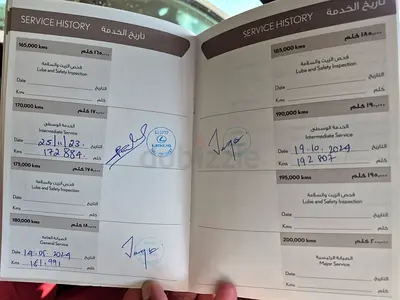 SERVICE HISTORY تاريخ الخدمة
165,000 kms ١٦٥,٠٠٠ كلم
فحص الزيت والسلامة
Lube and Safety Inspection
Date التاريخ
Kms كلم
170,000 kms ١٧٠,٠٠٠ كلم
الخدمة الوسطى
Intermediate Service
Date 25/11/23. التاريخ
Kms 172 884. كلم
175,000 kms ١٧٥,٠٠٠ كلم
فحص الزيت والسلامة
Lube and Safety Inspection
Date التاريخ
Kms كلم
180,000 kms ١٨٠,٠٠٠ كلم
الصيانة العامة
General Service
Date 14-05-2024 التاريخ
Kms 181,991 كلم
SERVICE HISTORY تاريخ الخدمة
185,000 kms ١٨٥,٠٠٠ كلم
فحص الزيت والسلامة
Lube and Safety Inspection
Date التاريخ
Kms كلم
190,000 kms ١٩٠,٠٠٠ كلم
الخدمة الوسطى
Intermediate Service
Date 19-10-2024 التاريخ
Kms 192 807 كلم
195,000 kms ١٩٥,٠٠٠ كلم
فحص الزيت والسلامة
Lube and Safety Inspection
Date التاريخ
Kms كلم
200,000 kms ٢٠٠,٠٠٠ كلم
الصيانة الرئيسية
Major Service
dubizzle